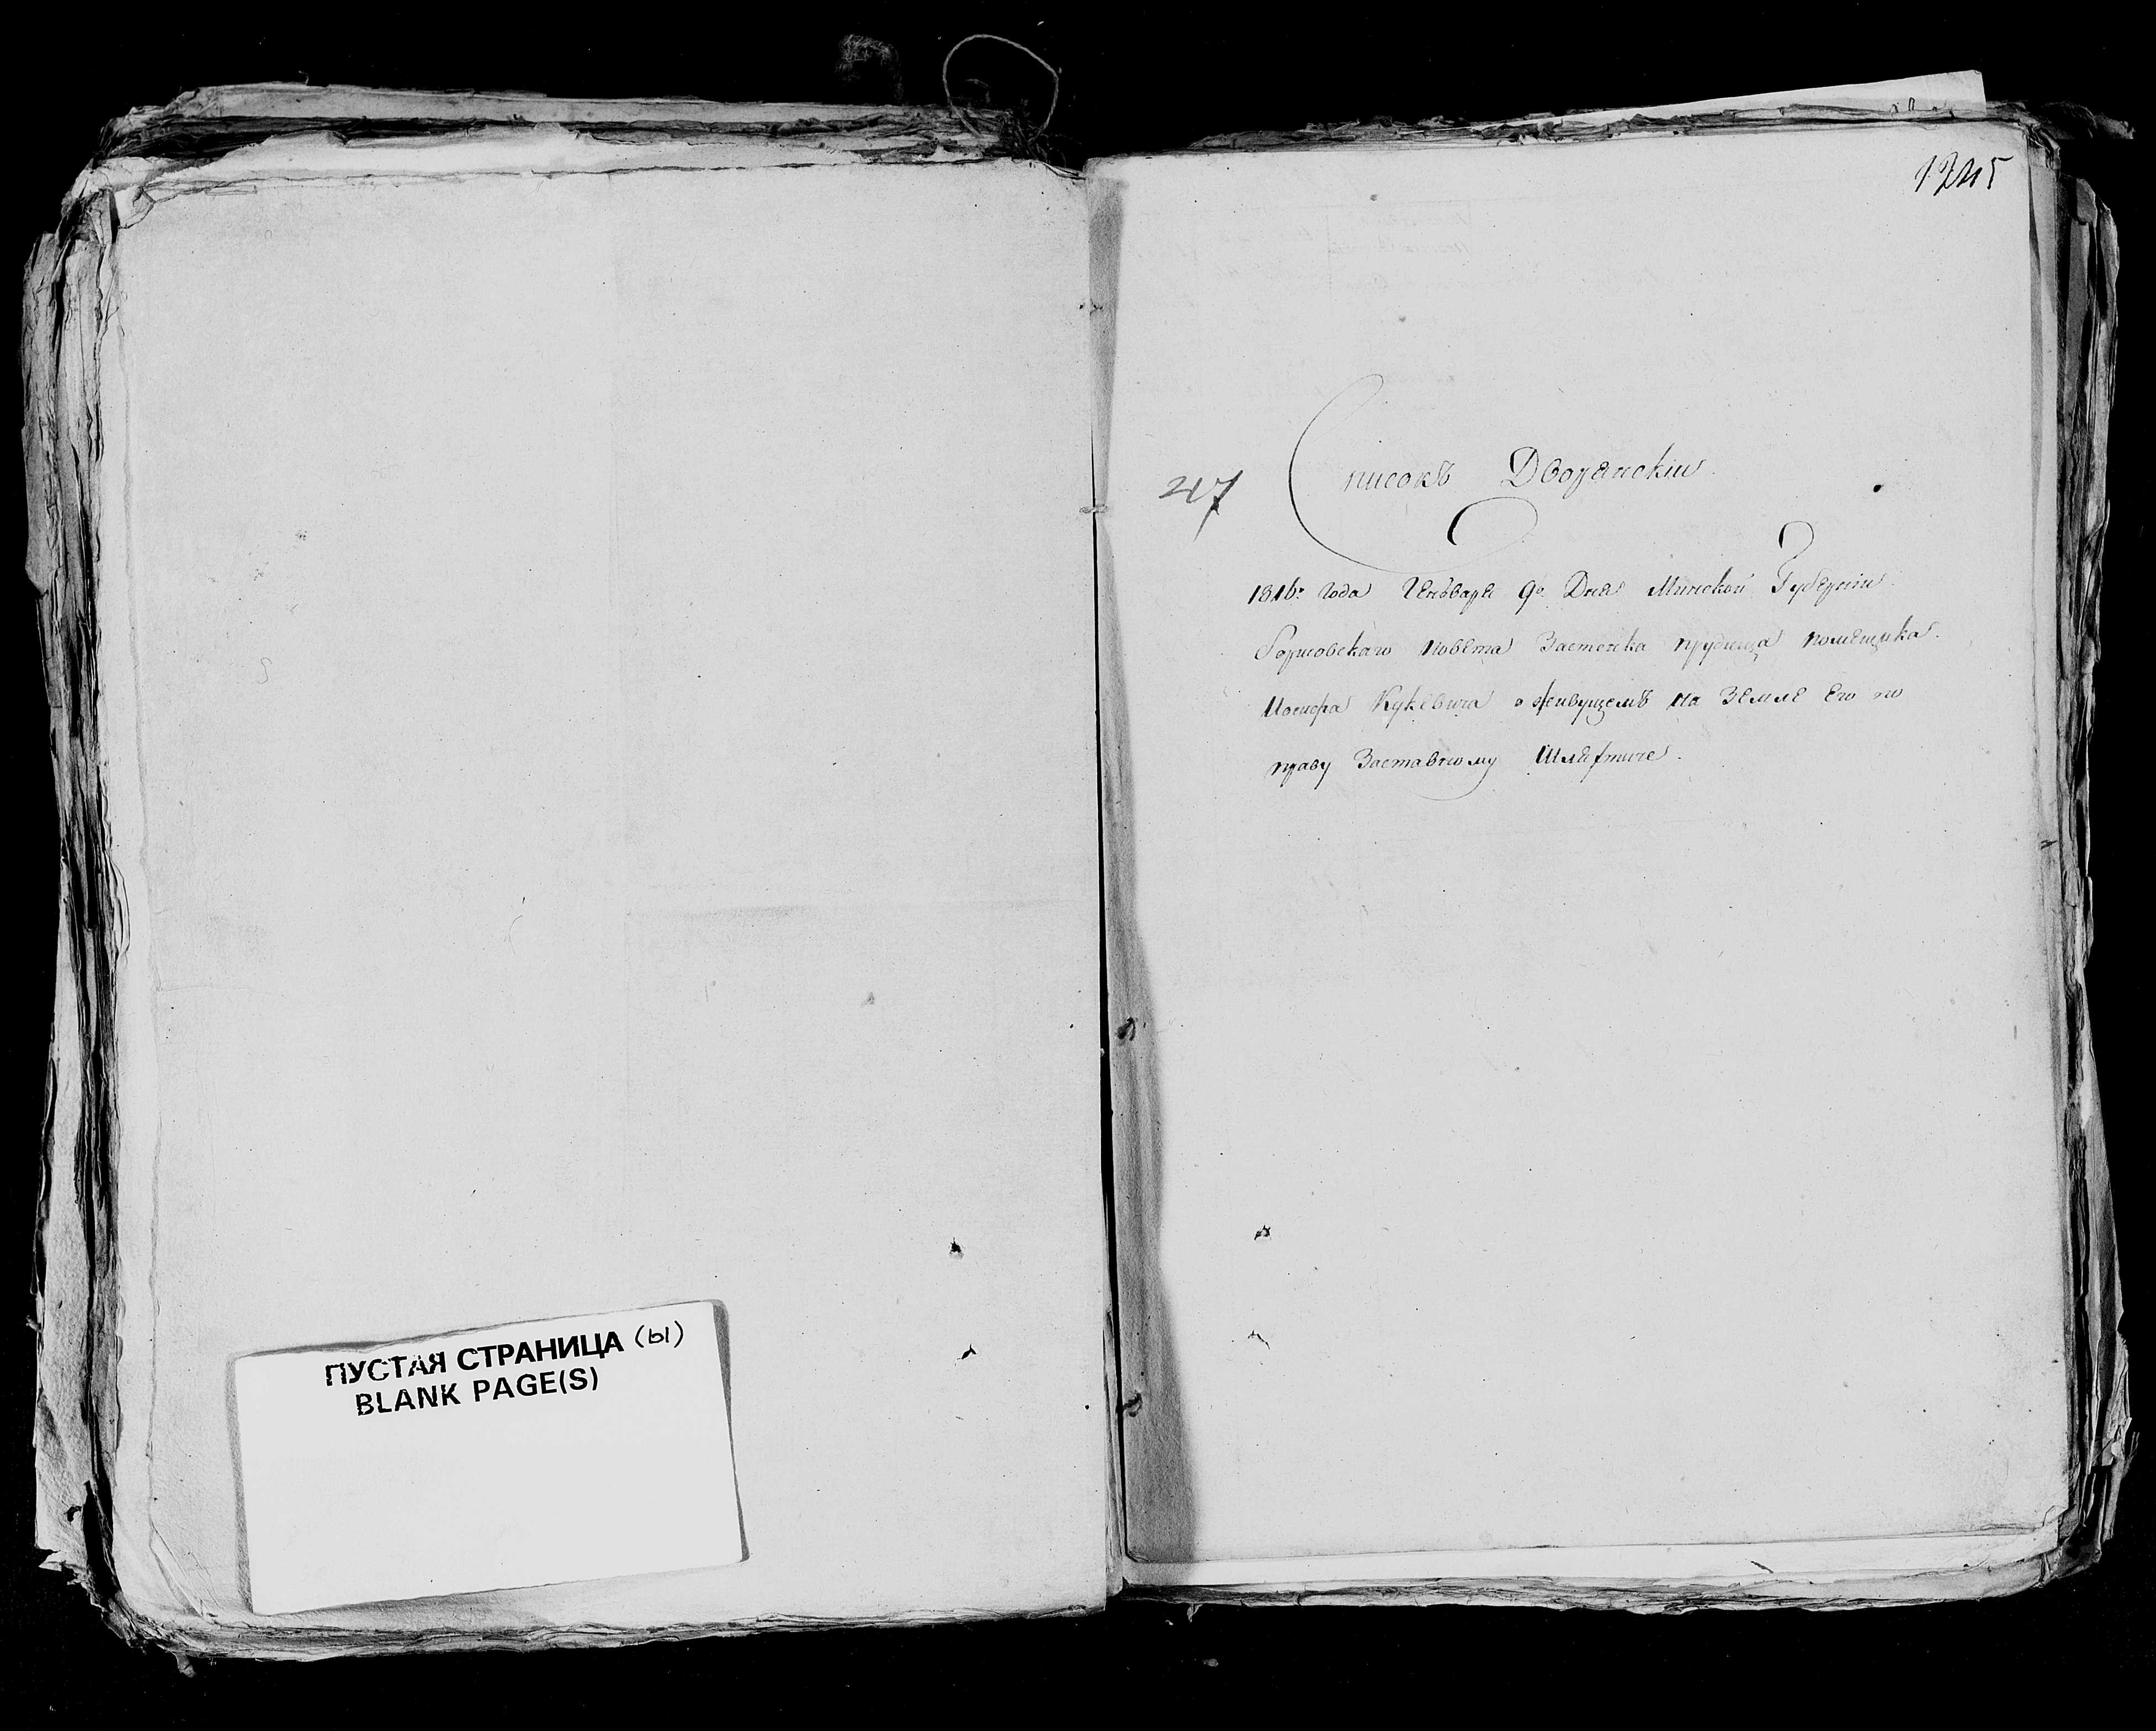 ПУСТАЯ СТРАНИЦА (ы)
BLANK PAGE(S)
1245
247
Списокъ Дворянскіи
1816го года Генъваря 9го Дня Минской Губерніи
Борисовскаго повѣта Застенка прудища помещика
Иосифа Кукевича о живущемъ на Земле Его по
праву Заставному Шляхтиче.